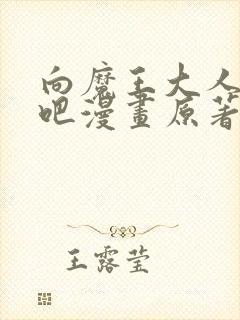 向魔王大人
吧漫畫原著
王露莹